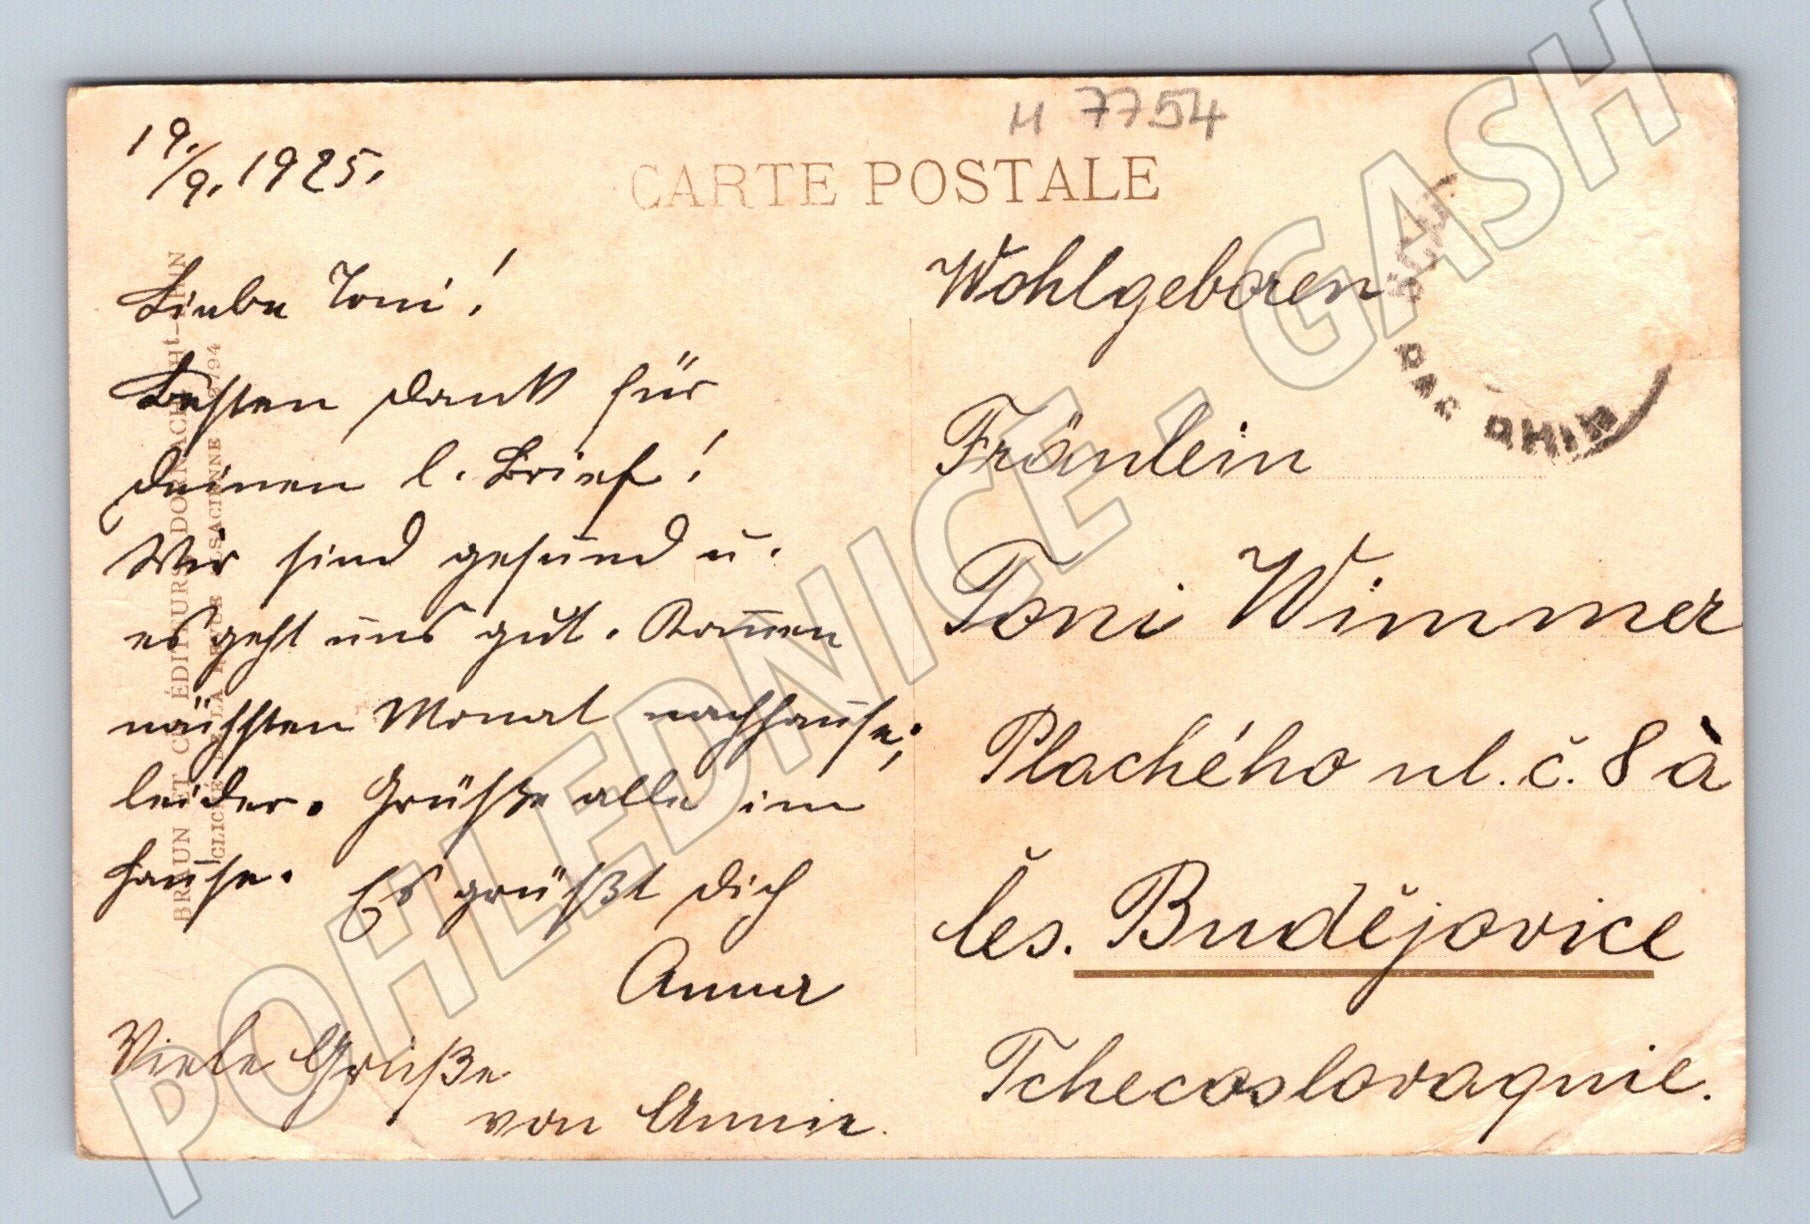 H 7754
CARTE POSTALE
19./9. 1925.
Liebe Toni!
Besten Dank für
Deinen l. Brief!
Wir sind gesund u.
es geht uns gut. Kommen
nächsten Monat nachhause;
leider. Grüße alle im
Hause. Es grüßt Dich
Anna
Viele Grüße
von Annie.
Wohlgeboren
Fräulein
Toni Wimmer
Plachého ul. č. 8 à
Čes. Budějovice
Tchecoslovaquie.
BAS RHIN
BRAUN ET Cie ÉDITEURS DORNACH
POHLEDNICE - GASH